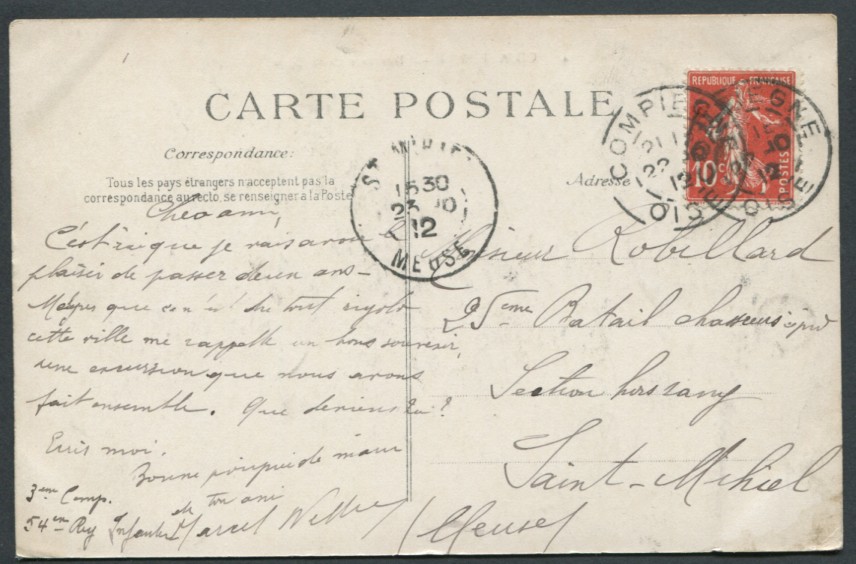 CARTE POSTALE
Correspondance:
Tous les pays étrangers n'acceptent pas la
correspondance au recto, se renseigner a la Poste
Adresse
REPUBLIQUE FRANÇAISE
10c
POSTES
COMPIEGNE
OISE
COMPIEGNE
OISE
15 30
12
MEUSE
Cher ami,
C'est ici que je vais avoir
plaisir de passer deux ans
que tout rigolo
cette ville me rappelle un bons souvenir,
une excursion que nous avons
fait ensemble. Que deviens tu?
Ecris moi.
Bonne poignée de main
de ton ami
Marcel
3eme Comp.
54em Reg Infanterie
Monsieur Robillard
25eme Batail chasseurs à pied
Section hors rang
Saint-Mihiel
(Meuse)